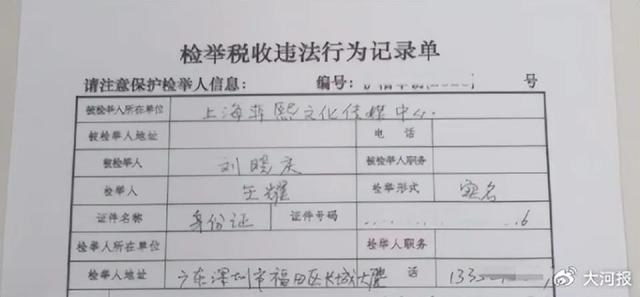 检举税收违法行为记录单
请注意保护检举人信息： 编号： 号
被检举人所在单位 上海菲熙文化传媒中心
被检举人地址 电 话
被检举人 刘晓庆 被检举人职务
检举人 王耀 检举形式 实名
证件名称 身份证 证件号码 6
检举人所在单位 检举人职务
检举人地址 广东深圳市福田区长城大厦 话 1335
大河报